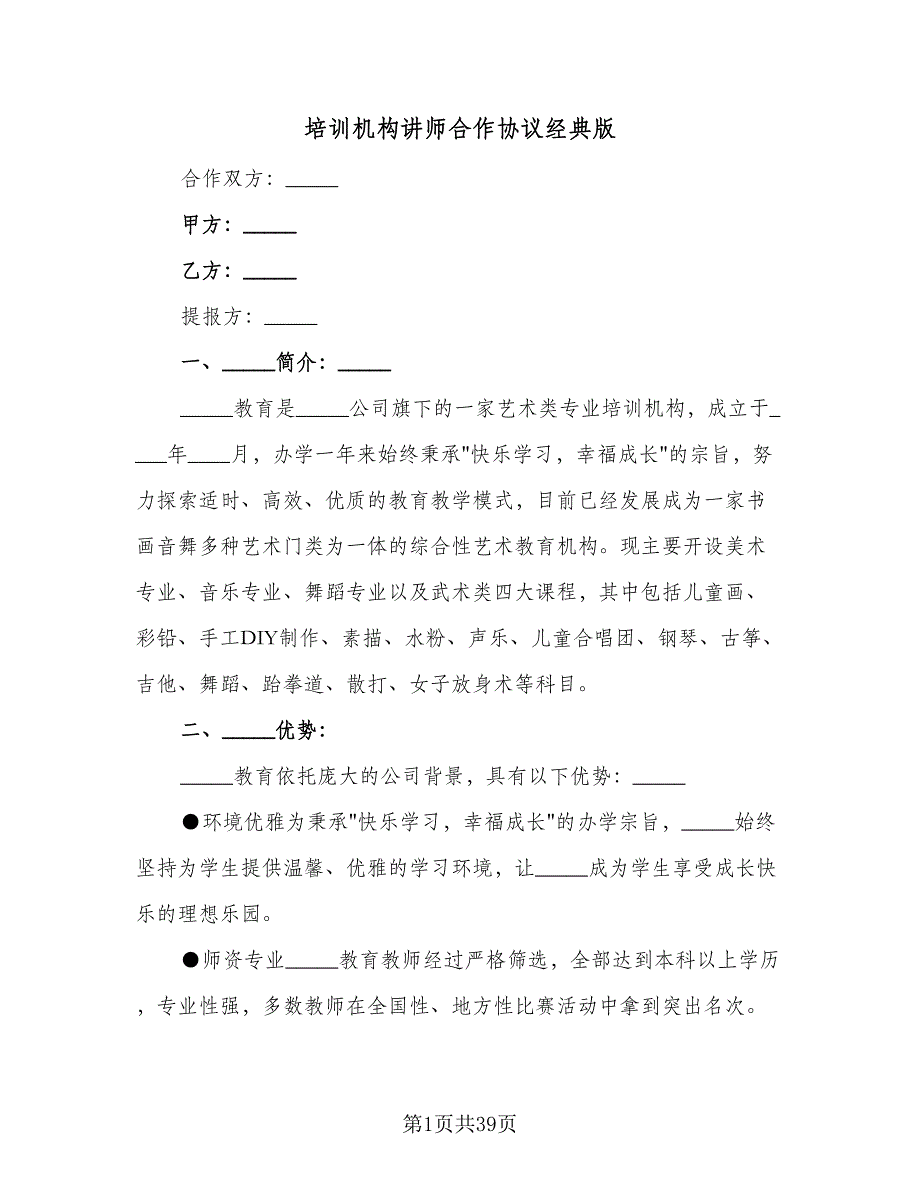 培训机构讲师合作协议经典版
合作双方：_____
甲方：_____
乙方：_____
提报方：_____
一、_____简介：_____
_____教育是_____公司旗下的一家艺术类专业培训机构，成立于_
___年____月，办学一年来始终秉承"快乐学习，幸福成长"的宗旨，努
力探索适时、高效、优质的教育教学模式，目前已经发展成为一家书
画音舞多种艺术门类为一体的综合性艺术教育机构。现主要开设美术
专业、音乐专业、舞蹈专业以及武术类四大课程，其中包括儿童画、
彩铅、手工DIY制作、素描、水粉、声乐、儿童合唱团、钢琴、古筝、
吉他、舞蹈、跆拳道、散打、女子放身术等科目。
二、_____优势：
_____教育依托庞大的公司背景，具有以下优势：_____
●环境优雅为秉承"快乐学习，幸福成长"的办学宗旨，_____始终
坚持为学生提供温馨、优雅的学习环境，让_____成为学生享受成长快
乐的理想乐园。
●师资专业_____教育教师经过严格筛选，全部达到本科以上学历
，专业性强，多数教师在全国性、地方性比赛活动中拿到突出名次。
第1页共39页